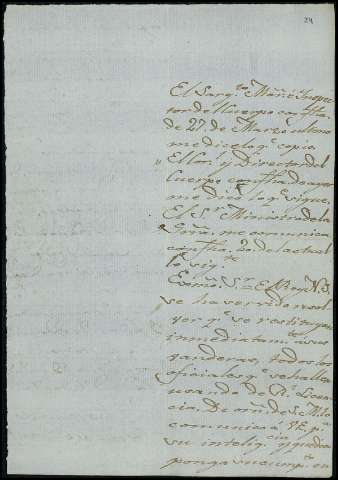 24
El Sarg.to Mayor é Inspec
tor del Cuerpo con fha.
de 27. de Marzo ultimo
me dice lo q.e copio.
El Cor.l y Director del
Cuerpo con fha de ayer
me dice lo q.e sigue.
El S.r Ministro de la
Grra. me comunica
con fha. 20. del actual
lo sig.te
Exmo. S.r = El Rey N. S.
se ha servido resol
ver q.e se restituyan
inmediatam.te a sus
vanderas, todos los
oficiales q.e se hallen
usando de R.l Licen
cia. De orn. de S. M. lo
comunico á V.E. p.a
su intelig.cia y q.e dis
ponga su cump.to en